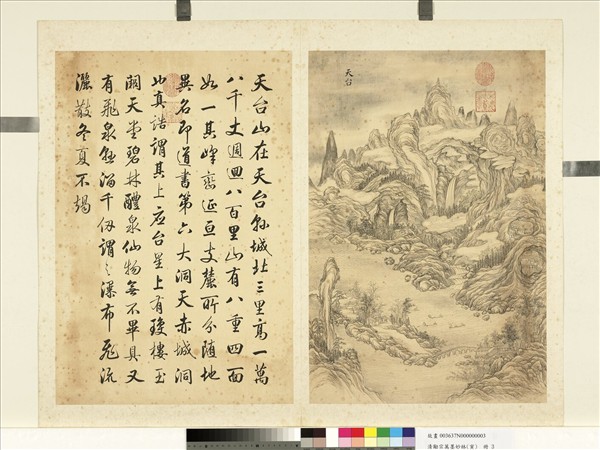 天台
天台山在天台縣城北三里高一萬
八千丈週迴八百里山有八重四面
如一其峰巒延亘支麓所分隨地
異名即道書第六大洞天赤城洞
此真誥謂其上應台星上有瓊樓玉
闕天堂碧林醴泉仙物無不畢具又
有飛泉懸溜千仞謂之瀑布飛流
灑散冬夏不竭
故畫 003637N000000003